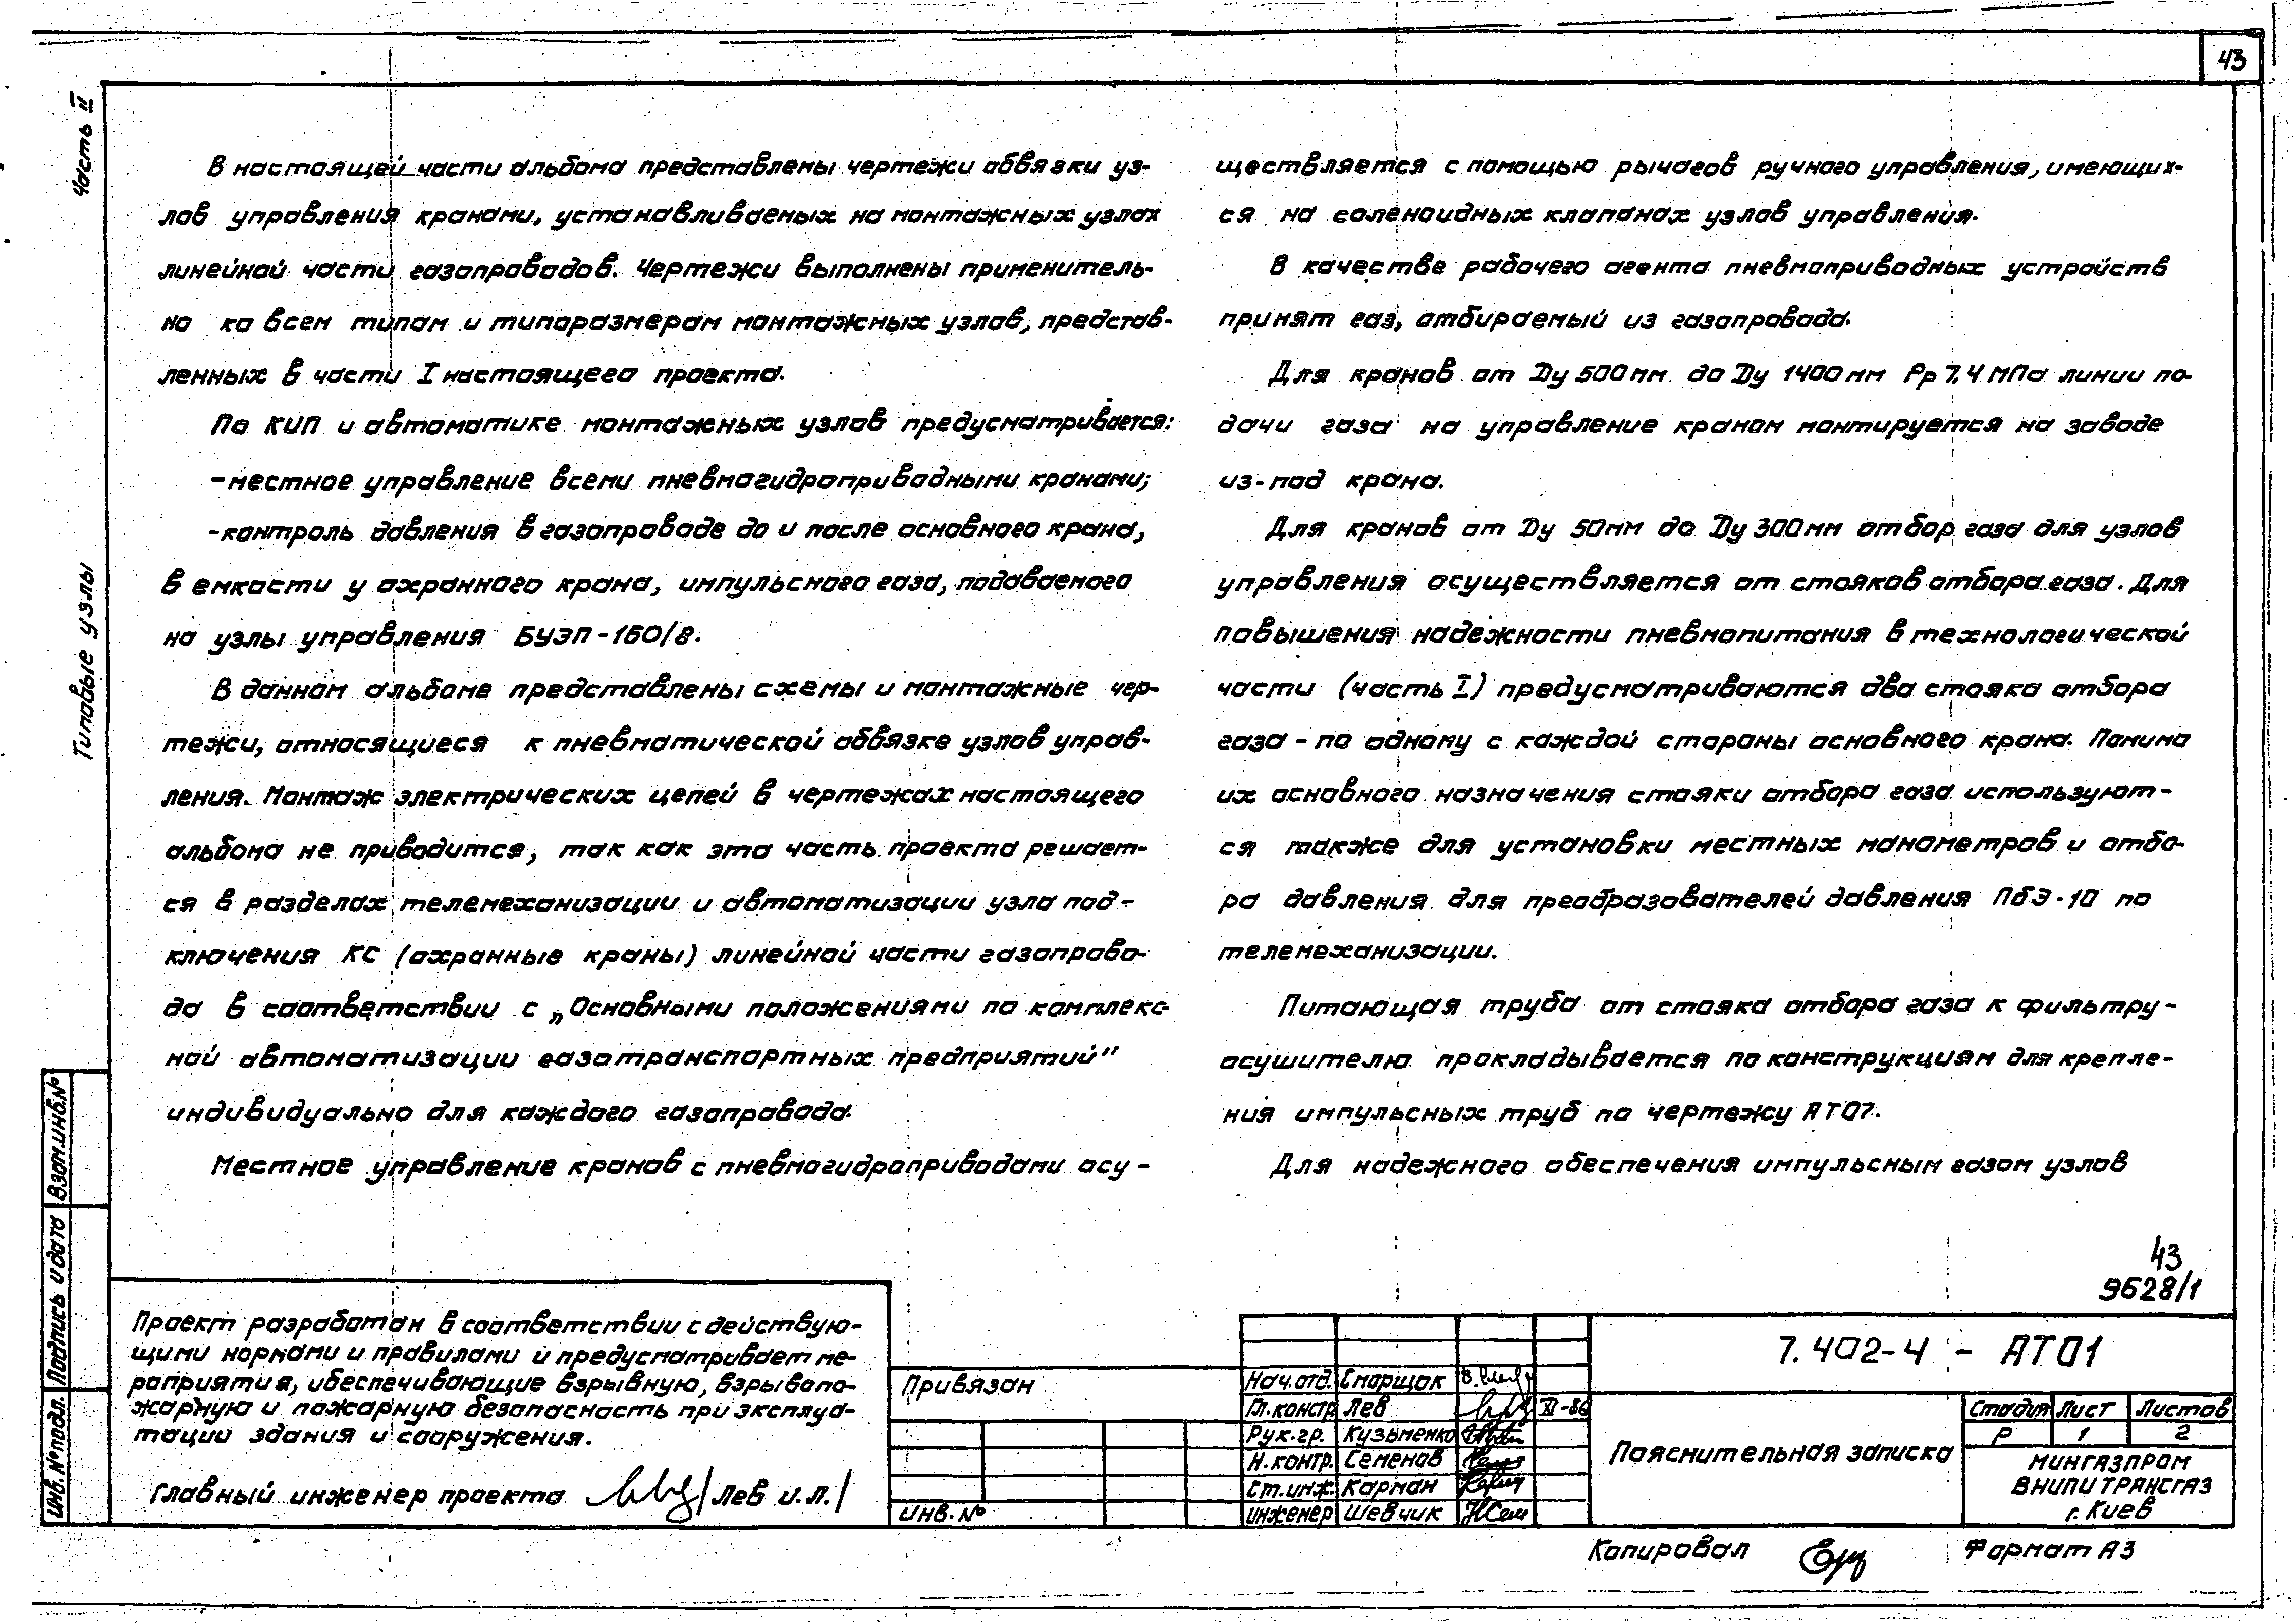 43
Часть II
Типовые узлы
В настоящей части альбома представлены чертежи обвязки уз-
лов управления кранами, устанавливаемых на монтажных узлах
линейной части газопроводов. Чертежи выполнены применитель-
но ко всем типам и типоразмерам монтажных узлов, представ-
ленных в части I настоящего проекта.
По КИП и автоматике монтажных узлов предусматривается:
-местное управление всеми пневмогидроприводными кранами;
-контроль давления в газопроводе до и после основного крана,
в емкости у охранного крана, импульсного газа, подаваемого
на узлы управления БУЭП-160/8.
В данном альбоме представлены схемы и монтажные чер-
тежи, относящиеся к пневматической обвязке узлов управ-
ления. Монтаж электрических цепей в чертежах настоящего
альбома не приводится, так как эта часть проекта решает-
ся в разделах телемеханизации и автоматизации узла под-
ключения КС (охранные краны) линейной части газопрово-
да в соответствии с „Основными положениями по комплекс-
ной автоматизации газотранспортных предприятий"
индивидуально для каждого газопровода.
Местное управление кранов с пневмогидроприводами осу-
ществляется с помощью рычагов ручного управления, имеющих-
ся на соленоидных клапанах узлов управления.
В качестве рабочего агента пневмоприводных устройств
принят газ, отбираемый из газопровода.
Для кранов от Ду 500мм до Ду 1400мм Рр 7,4 МПа линии по-
дачи газа на управление краном монтируется на заводе
из-под крана.
Для кранов от Ду 50мм до Ду 300мм отбор газа для узлов
управления осуществляется от стояков отбора газа. Для
повышения надежности пневмопитания в технологической
части (часть I) предусматриваются два стояка отбора
газа - по одному с каждой стороны основного крана. Помимо
их основного назначения стояки отбора газа используют-
ся также для установки местных манометров и отбо-
ра давления для преобразователей давления ПбЭ-10 по
телемеханизации.
Питающая труба от стояка отбора газа к фильтру-
осушителю прокладывается по конструкциям для крепле-
ния импульсных труб по чертежу АТ07.
Для надежного обеспечения импульсным газом узлов
43
9628/1
Проект разработан в соответствии с действую-
щими нормами и правилами и предусматривает ме-
роприятия, обеспечивающие взрывную, взрывопо-
жарную и пожарную безопасность при эксплуа-
тации здания и сооружения.
Главный инженер проекта /Лев И.Л./
Привязан
Инв. №
Нач.отд. Смарщок
Гл.констр. Лев XI-86
Рук.гр. Кузьменко
Н.контр. Семенов
Ст.инж. Карман
Инженер Шевчик
7.402-4 - АТ01
Пояснительная записка
Стадия Лист Листов
Р 1 2
МИНГАЗПРОМ
ВНИПИТРАНСГАЗ
г. Киев
Копировал
Формат А3
Взам.инв.№
Подпись и дата
Инв. № подл.